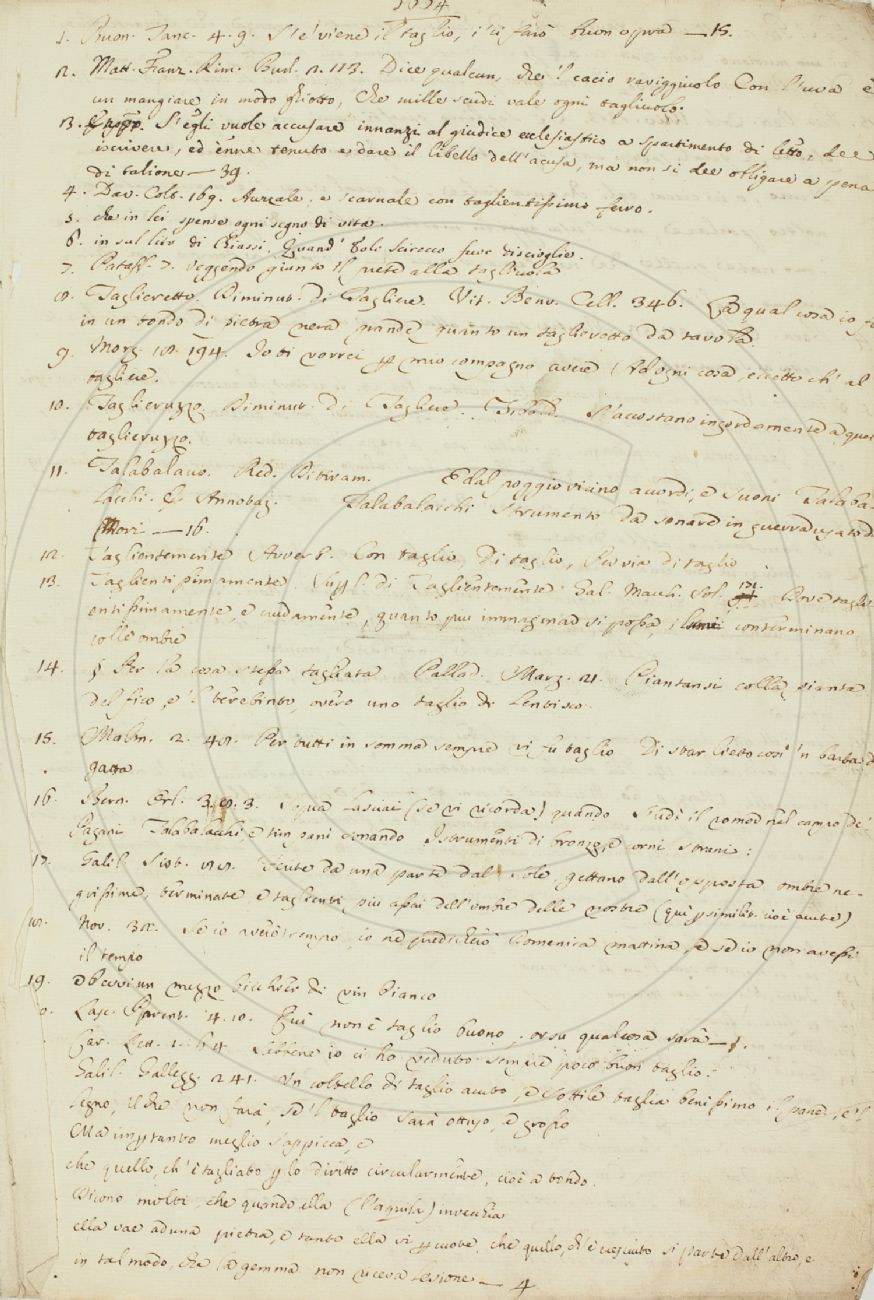 1. Buon. Tanc. 4. 9. S'e' viene il taglio, i' ti farò buon opra — 15.
2. Matt. Franz. Rim. Burl. 2. 113. Dice qualcun, che 'l cacio raviggiuolo Con l'uva è
un mangiare in modo ghiotto, Che mille scudi vale ogni tagliuolo.
3. S'egli vuole accusare innanzi al giudice ecclesiastico a spartimento di letto, dee
iscrivere, ed ènne tenuto a dare il libello dell'acusa, ma non si dee obligare a pena
di talione — 39.
4. Dav. Colt. 169. Auzzale, e scarnale con taglientissimo ferro.
5. che in lei spense ogni segno di vita.
6. in sul lito di Chiassi, Quand' Eolo Scirocco fuor discioglie.
7. Pataff. 7. Veggendo giunto il prete alla tagliuola
8. Taglieretto. Diminut. di Tagliere. Vit. Benv. Cell. 346. La qual cosa io
in un tondo di pietra nera grande quanto un taglieretto da tavola.
9. Morg. 18. 194. Io ti vorrei per mio compagno avere (Ad ogni cosa, eccetto ch' al
tagliere.
10. Taglieruzzo. Diminut. di Tagliere. S'accostano ingordamente a quei
taglieruzzi.
11. Talabalacco. Red. Ditiram. E dal poggio vicino accordi, e suoni Talaba-
lacchi. Annotaz. Talabalacchi strumento da sonare in guerra usato da
Mori — 16.
12. Taglientemente Avverb. Con taglio, Di taglio, Per via di taglio
13. Taglientissimamente. Superl. di Taglientemente. Gal. Macch. Sol. 171. Dove tagli-
entissimamente, e crudamente, quanto più immaginar si possa, i lumi conterminano
colle ombre
14. § Per la cosa stessa tagliata Pallad. Marz. 21. Piantansi colla pianta
del fico, e 'l terebinto, overo uno taglio di lentisco.
15. Malm. 2. 48. Per tutti in somma sempre vi fu taglio Di star lieto così 'n barba di
gatta
16. Bern. Orl. 3. 8. 3. I qua' lasciai (se vi ricorda) quando S'udì il romor nel campo de'
Pagani Talabalacchi, e timpani sonando Istrumenti di bronzo, e corni strani:
17. Galil. Sist. 88. Vedute da una parte dal Sole, gettano dall'opposta ombre ne-
grissime, terminate e taglienti più assai dell'ombre delle nostre (qui similit. cioè acute)
18. Nov. 32. Se io averò tempo, io ne predicherò Domenica mattina, e se io non avessi
il tempo
19. e bevvi un mezzo bicchier di vin bianco
0. Lasc. Parent. 4. 10. Qui non è taglio buono, orsù qualcosa sarà — 1.
Car. Lett. 1. 64. Sebbene io ci ho veduto sempre poco buon taglio.
Galil. Gallegg. 241. Un coltello di taglio acuto, e sottile taglia benissimo il pane, e 'l
legno, il che non farà, se 'l taglio sarà ottuso, e grosso
Ma impertanto meglio s'appicca, e
che quello, ch'è tagliato per lo diritto circularmente, cioè a tondo.
Dicono molti, che quando ella (l'aquila) invecchia
ella vae ad una pietra, e tanto ella vi percuote, che quello, ch'è cresciuto si parte dall'altro, e
in tal modo, che la gemma non riceva lesione — 4